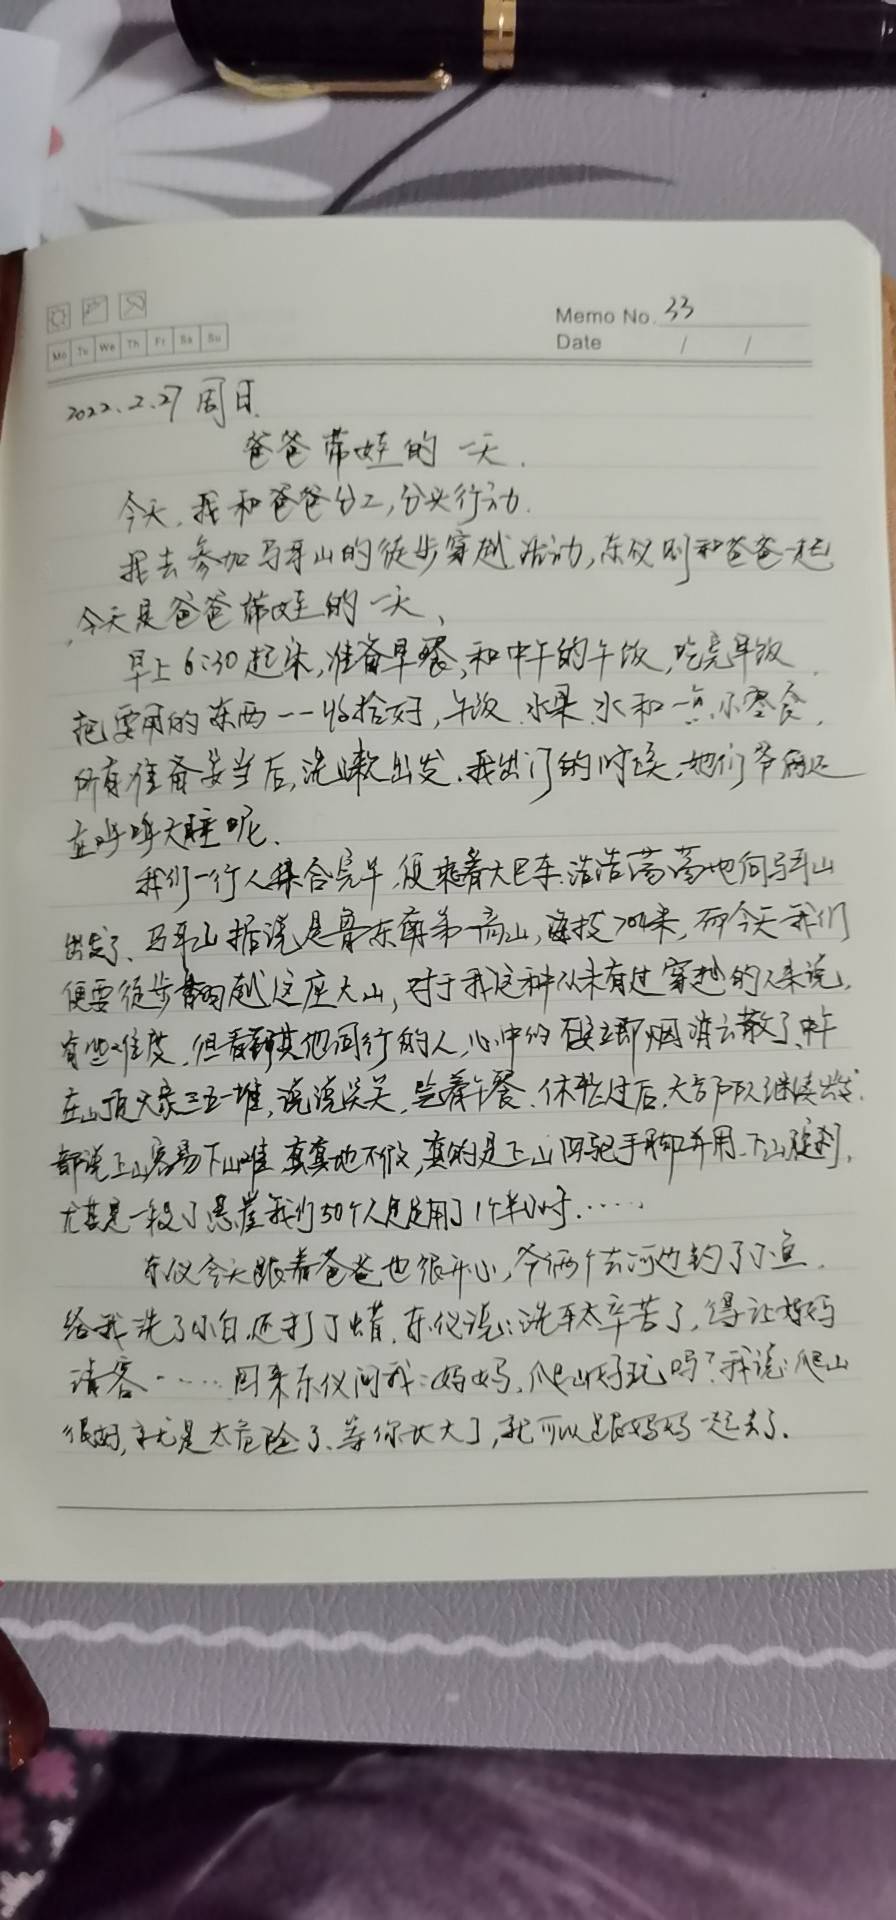 Memo No. 33
Mo Tu We Th Fr Sa Su
Date / /
2022.2.27 周日.
爸爸带娃的一天.
今天,我和爸爸分工,分头行动.
我去参加马耳山的徒步穿越活动,东仪则和爸爸一起
,今天是爸爸带娃的一天、
早上6:30起床,准备早餐,和中午的午饭,吃完早饭,
把要用的东西一一收拾好,午饭、水果、水和一点小零食,
所有准备妥当后,洗漱出发.我出门的时候,她们爷俩还
在呼呼大睡呢、
我们一行人集合完毕,便乘着大巴车浩浩荡荡地向马耳山
出发了、马耳山据说是鲁东南第一高山,海拔700米,而今天我们
便要徒步翻越这座大山,对于我这种从未有过穿越的人来说,
有些难度,但看到其他同行的人,心中的 立即烟消云散了、中午
在山顶大家三五一堆,说说笑笑,吃着午餐.休整过后,大部队继续出发.
都说上山容易下山难,真真地不假,真的是上山四驱手脚并用、下山腿刹,
尤其是一段小悬崖我们50个人足足用了1个半小时.……
东仪今天跟着爸爸也很开心,爷俩个去河边钓了小鱼.
给我洗了小白,还打了蜡.东仪说:洗车太辛苦了,得让妈妈
请客……回来东仪问我:妈妈,爬山好玩吗?我说:爬山
很好,就是太危险了、等你长大了,就可以跟妈妈一起去了.